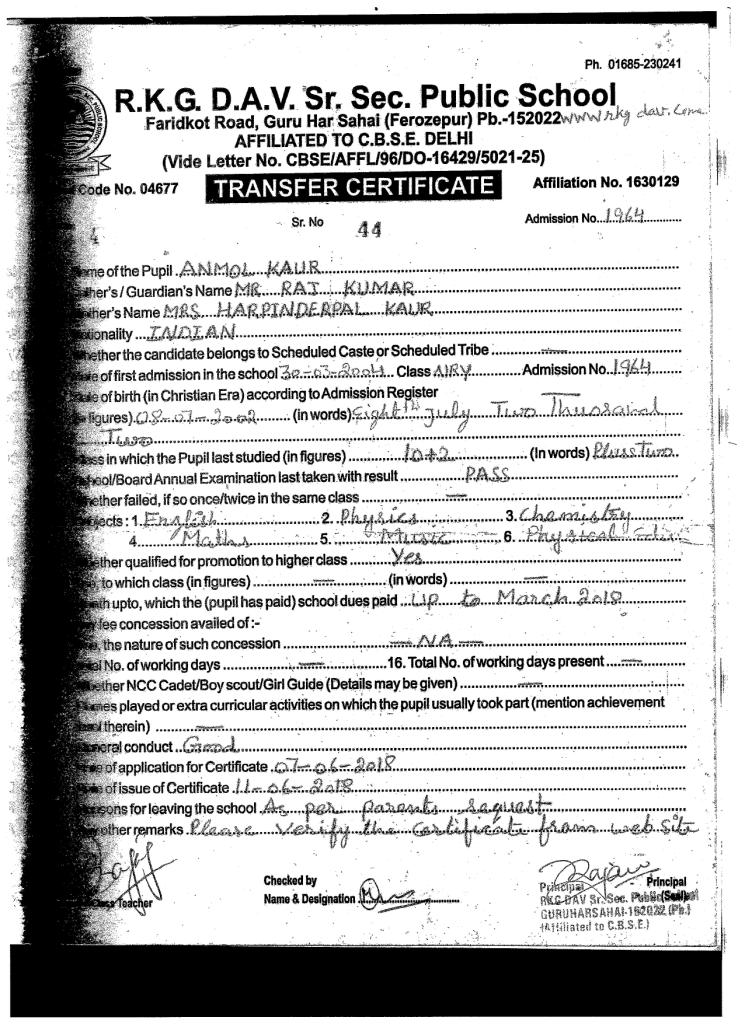 Ph. 01685-230241
R.K.G. D.A.V. Sr. Sec. Public School
Faridkot Road, Guru Har Sahai (Ferozepur) Pb.-152022 www rkg dav. Com
AFFILIATED TO C.B.S.E. DELHI
(Vide Letter No. CBSE/AFFL/96/DO-16429/5021-25)
Code No. 04677 TRANSFER CERTIFICATE Affiliation No. 1630129
Sr. No 44 Admission No. 1964
me of the Pupil ANMOL KAUR
ther's / Guardian's Name MR. RAJ KUMAR
her's Name MRS HARPINDERPAL KAUR
ionality INDIAN
hether the candidate belongs to Scheduled Caste or Scheduled Tribe —
of first admission in the school 30-03-2004 Class Admission No. 1964
of birth (in Christian Era) according to Admission Register
figures) 08-07-2002 (in words) Eight th July Two Thusand
Two
ss in which the Pupil last studied (in figures) 10+2 (In words) Pluss Two
ool/Board Annual Examination last taken with result PASS
hether failed, if so once/twice in the same class —
jects : 1. English 2. Physics 3. Chamistry
4. Maths 5. Music 6. Physical
ether qualified for promotion to higher class Yes
to which class (in figures) — (in words) —
th upto, which the (pupil has paid) school dues paid UP to March 2018
fee concession availed of :-
the nature of such concession — NA —
al No. of working days — 16. Total No. of working days present —
ether NCC Cadet/Boy scout/Girl Guide (Details may be given) —
mes played or extra curricular activities on which the pupil usually took part (mention achievement
therein) —
neral conduct Good
of application for Certificate 07-06-2018
of issue of Certificate 11-06-2018
sons for leaving the school As per parents request
other remarks Please Verify the certificate from web site
Checked by
Name & Designation
Class Teacher
Principal Principal
RKG DAV Sr. Sec. Public School
GURUHARSAHAI-152022 (Pb.)
(Affiliated to C.B.S.E.)